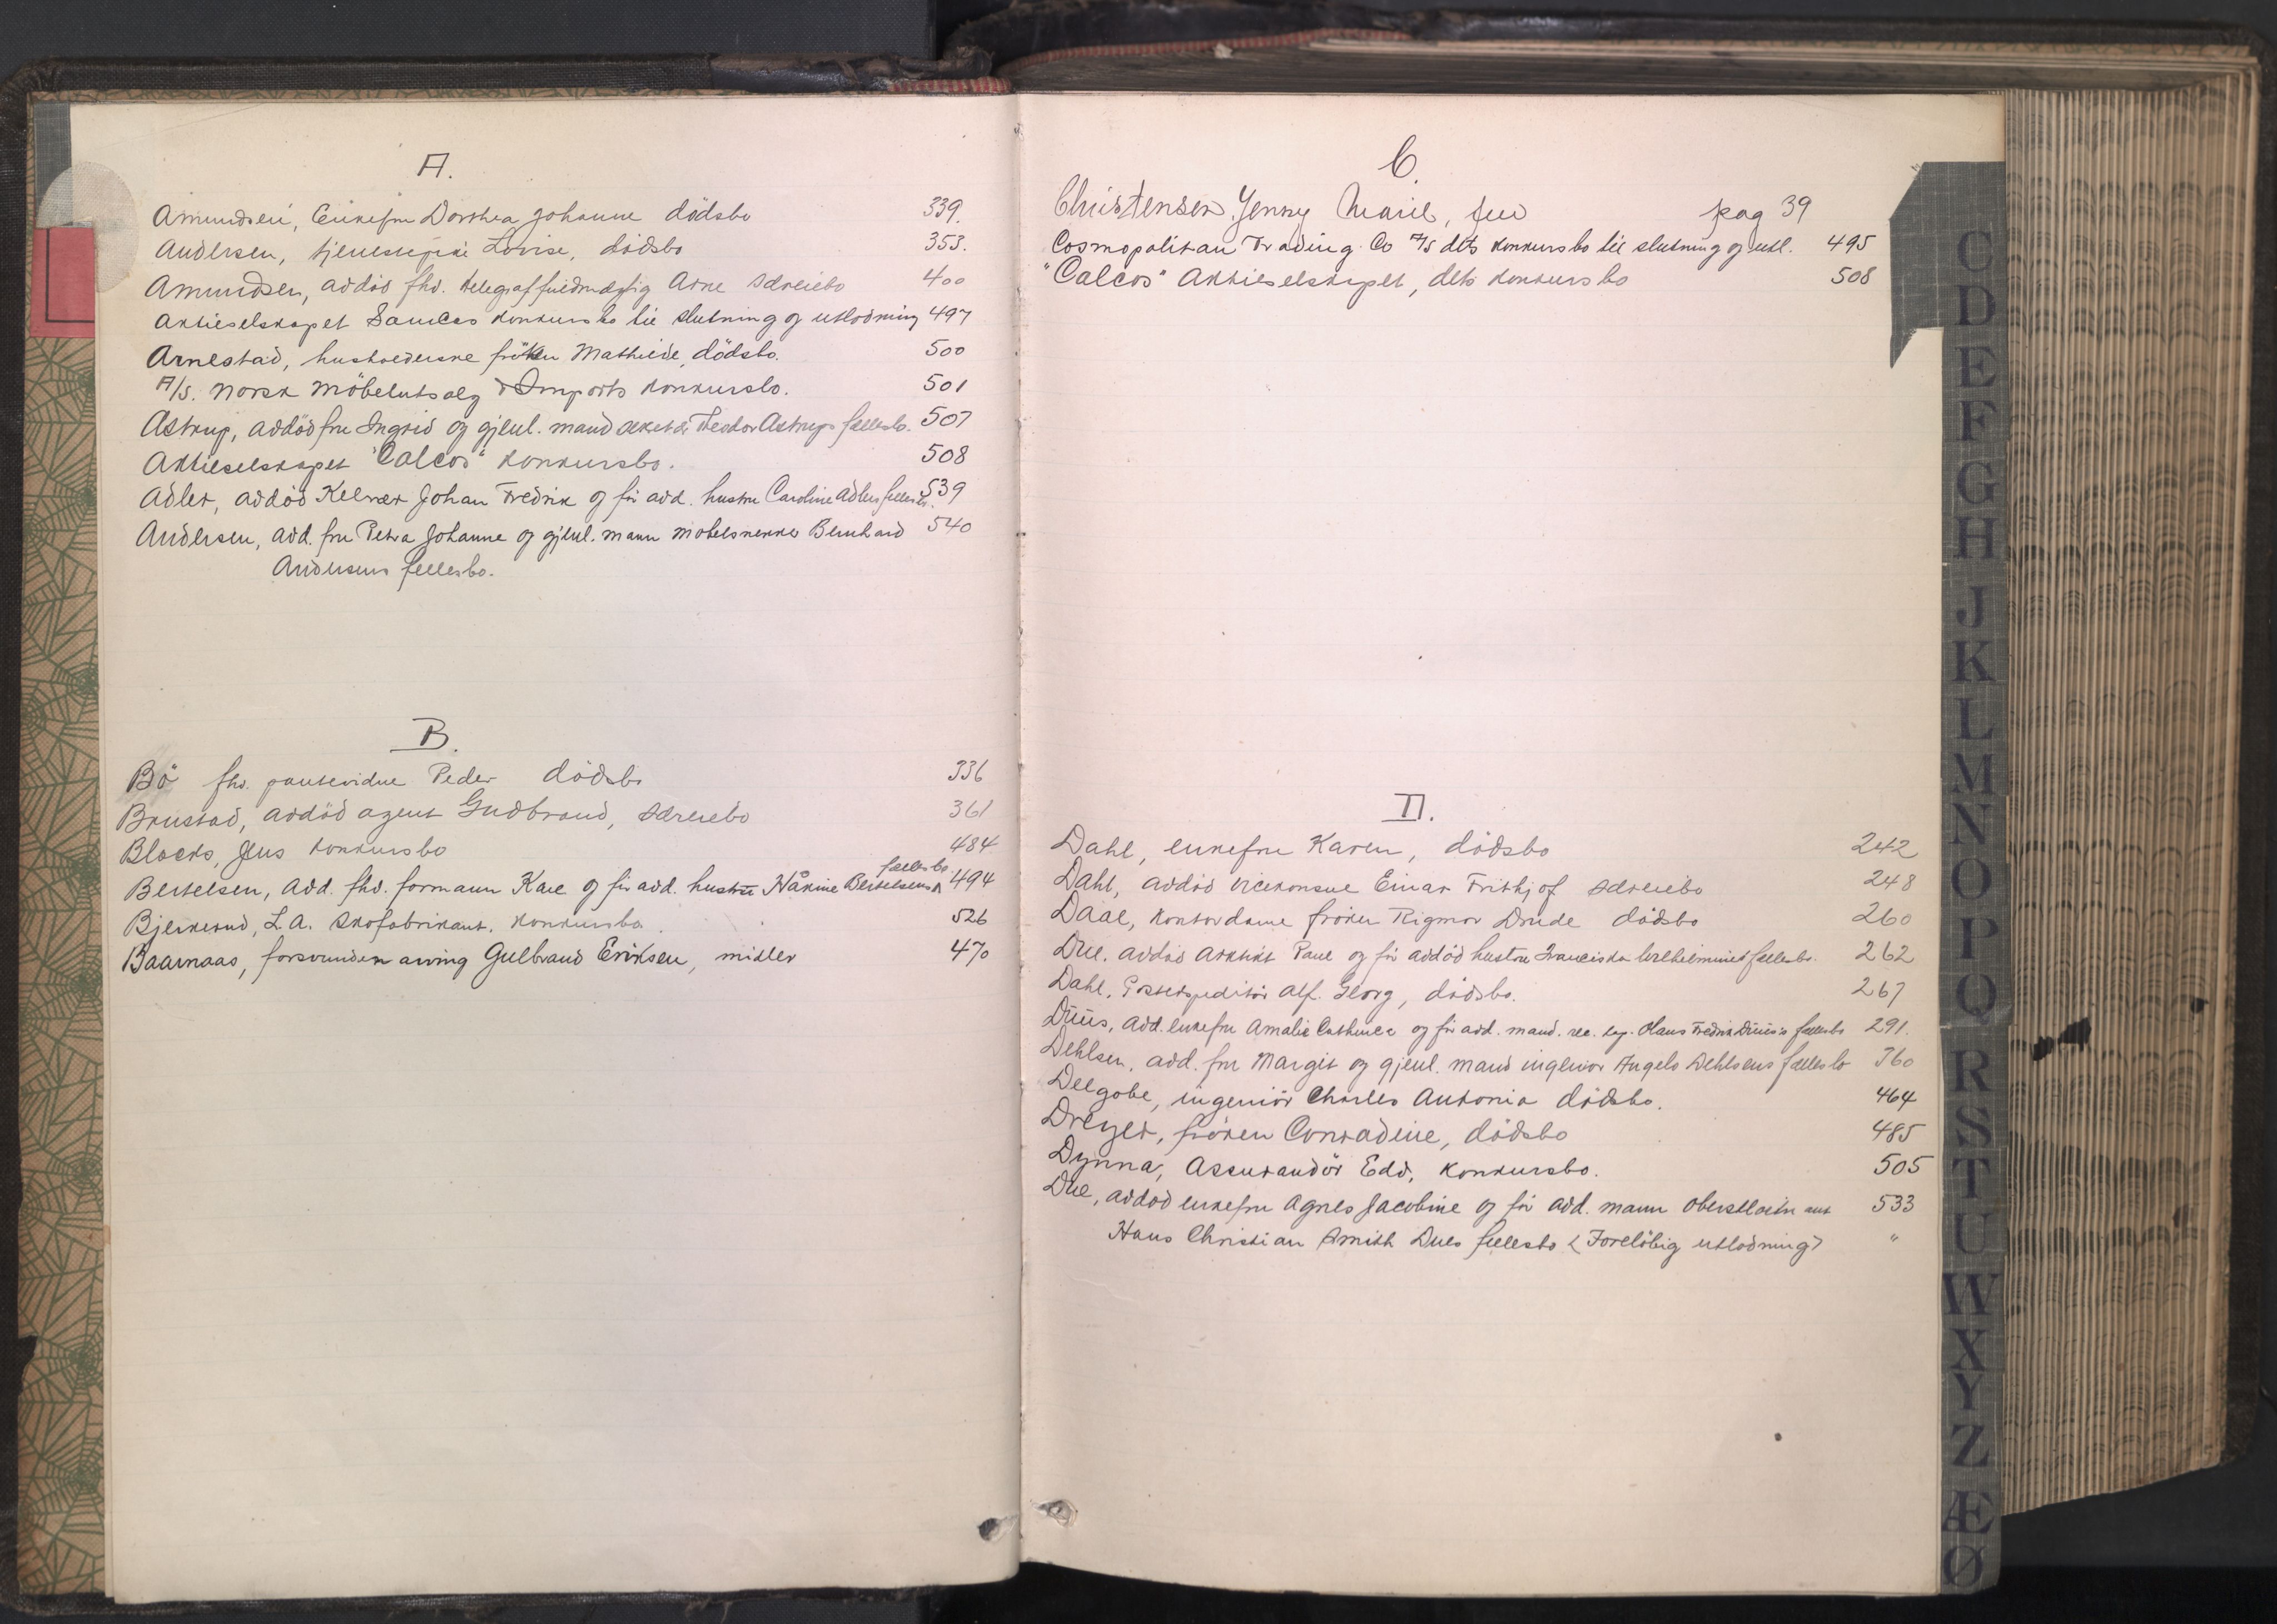 A.
Amundsen, Enkefru Dorthea Johanne dödsbo 339.
Andersen, tjenestepike Lovise, dödsbo 353.
Amundsen, avdöd fhv. telegraffuldmægtig Arne særeiebo 400
Aktieselskapet Sameas konkursbo til slutning og utlodning 497
Arnestad, husholderske fröken Mathilde, dödsbo. 500
A/S. Norsk Möbelutsalg & Imports konkursbo. 501
Astrup, avdöd fru Ingrid og gjenl. mand sekretær Theodor Astrups fællesbo. 507
Aktieselskapet "Calcos" konkursbo. 508
Adler, avdöd Kelner Johan Fredrik og för avd. hustru Caroline Adlers fellesbo. 539
Andersen, avd. fru Petra Johanne og gjenl. mann möbelsnekker Bernhard 540
Andersens fellesbo.
B.
Bö fhv. pantevidne Peder dödsbo 336
Brustad, avdöd agent Gudbrand, særeiebo 361
Blocks, Jens konkursbo 484
fællesbo
Bertelsen, Avd. fhv. formann Karl og för avd. hustru Håkine Bertelsens 494
Bjerkerud, L.A. skofabrikant. konkursbo. 526
Baarnaas, forsvunden arving Gulbrand Eriksen, midler 470
C.
Christensen, Jenny Marie, fru pag 39
Cosmopolitan Trading Co A/S dets konkursbo til slutning og utl. 495
"Calcos" Aktieselskapet, dets konkursbo 508
D.
Dahl, enkefru Karen, dödsbo 242
Dahl, avdöd vicekonsul Einar Frithjof særeiebo 248
Daae, kontordame fröken Rigmor Drude dödsbo 260
Due, avdöd arkitekt Paul og för avdöd hustru Franciska Wilhelmines fællesbo. 262
Dahl, Postekspeditör Alf. Georg, dödsbo. 267
Duus, avd. enkefru Amalie Cathinca og för avd. mand. res. kap. Hans Fredrik Duus's fællesbo 291.
Dehlsen, avd. fru Margit og gjenl. mand ingeniör Angelo Dehlsens fællesbo 360
Delgobe, ingeniör Charles Antonio dödsbo. 464
Dreyer, fröken Conradine, dödsbo 485
Dynna, Assurandör Edv. konkursbo. 505
Due, avdöd enkefru Agnes Jacobine og för avd. mann oberstlöitnant 533
Hans Christian Smith Dues fellesbo (Forelöbig utlodning) "
C
D
E
F
G
H
J
K
L
M
N
O
P
Q
R
S
T
U
W
X
Y
Z
Æ
Ø